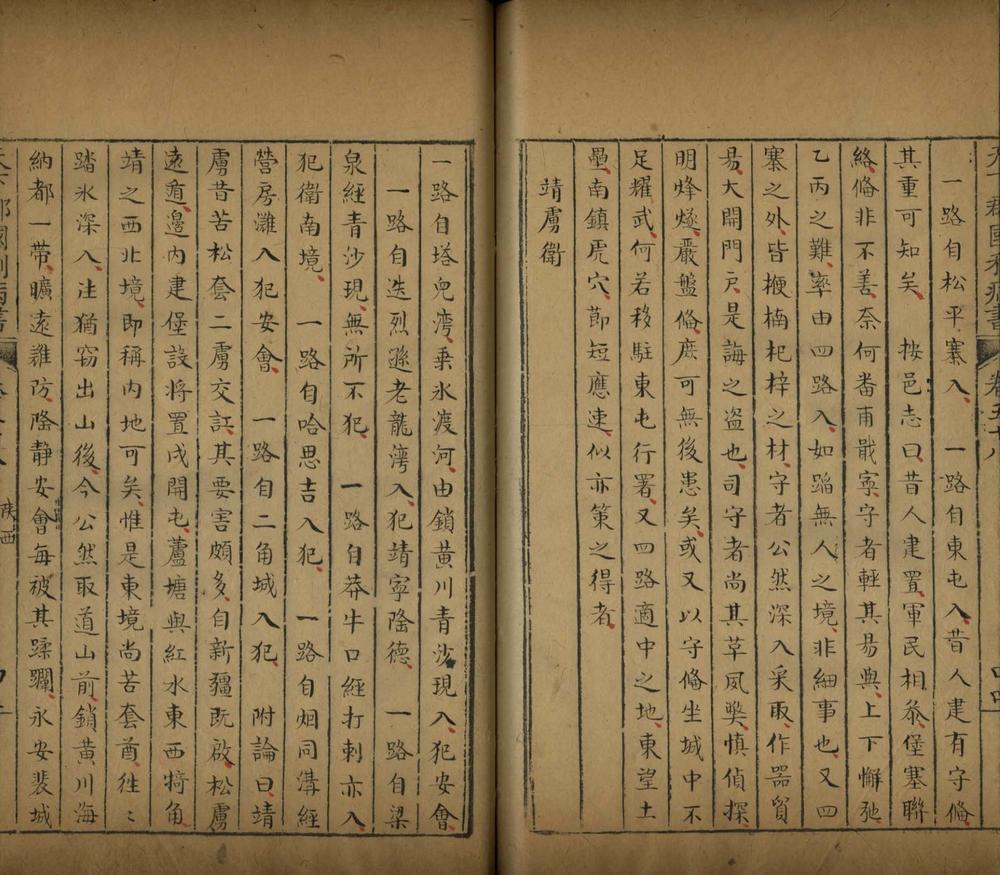 天下郡國利病書 卷五十八
一路自松平寨入 一路自東屯入昔人建有守俻
其重可知矣 按邑志曰昔人建置軍民相叅堡塞聯
絡俻非不善奈何番甫戢寜守者輕其易與上下懈弛
乙丙之難率由四路入如蹈無人之境非細事也又四
寨之外皆楩楠杞梓之材守者公然深入采取作器貿
易大開門戸是誨之盗也司守者尚其草夙獘慎偵探
明烽燧嚴盤俻庻可無後患矣或又以守俻坐城中不
足耀武何若移駐東屯行署又四路適中之地東望土
壘南鎮虎穴莭短應速似亦策之得者
靖虜衛
一路自塔兒灣乗氷渡河由鎖黄川青沙現入犯安會
一路自迭烈遜老龍灣入犯靖寧隆德 一路自梁
泉經青沙現無所不犯 一路自莽牛口經打剌亦入
犯衛南境 一路自哈思吉入犯 一路自烟同溝經
營房灘入犯安會 一路自二角城入犯 附論曰靖
虜昔苦松套二虜交訌其要害頗多自新疆既啟松虜
遠遁邊内建堡設將置戍開屯蘆塘與紅水東西犄角
靖之西北境即稱内地可矣惟是東境尚苦套酋徃〻
踏氷深入注猶窃出山後今公然取道山前鎖黄川海
納都一帶曠遠難防隆靜安會每被其蹂躙永安裴城
天下郡國利病書 陜西